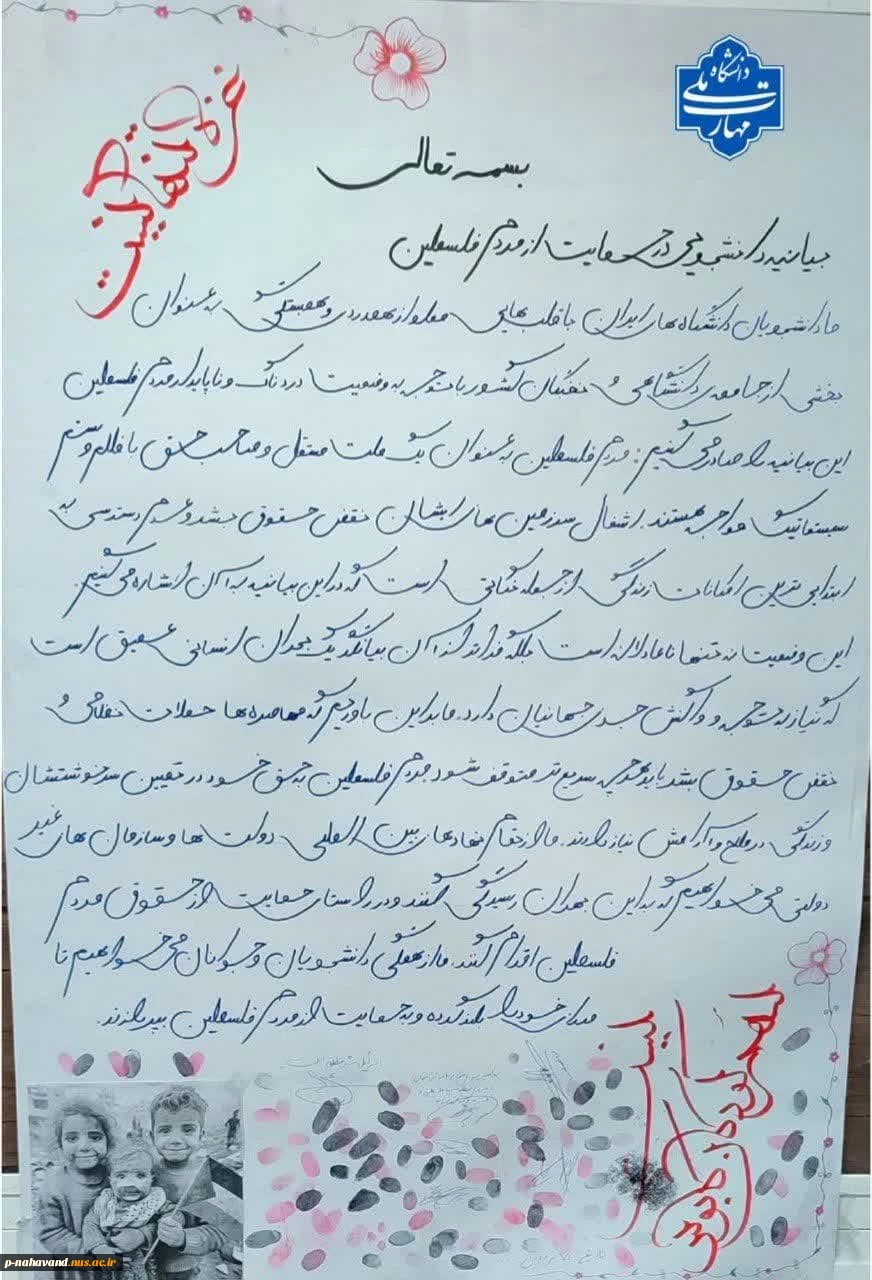 دانشگاه ملی مهارت
غزه تنها نیست
بسمه تعالی
بیانیه دانشجویی در حمایت از مردم فلسطین
ما دانشجویان دانشگاه های ایران با قلب هایی مملو از همدردی و همبستگی به عنوان
بخشی از جامعه ی دانشگاهی و نخبگان کشور با توجه به وضعیت دردناک و ناپایدار مردم فلسطین
این بیانیه را صادر می کنیم: مردم فلسطین به عنوان یک ملت مستقل و صاحب حق با ظلم و ستم
سیستماتیک مواجه هستند. اشغال سرزمین های ایشان نقض حقوق بشر و عدم دسترسی به
ابتدایی ترین امکانات زندگی از جمله نکاتی است که در این بیانیه به آن اشاره می کنیم.
این وضعیت نه تنها ناعادلانه است بلکه فراتر از آن بیانگر یک بحران انسانی عمیق است
که نیاز به توجه و واکنش جدی جهانیان دارد. ما بر این باوریم که محاصره ها حملات نظامی و
نقض حقوق بشر باید هر چه سریع تر متوقف شود مردم فلسطین به حق خود در تعیین سرنوشتشان
و زندگی در صلح و آرامش نیاز دارند. ما از تمام نهادهای بین المللی دولت ها و سازمان های غیر
دولتی می خواهیم که به این بحران رسیدگی کنند و در راستای حمایت از حقوق مردم
فلسطین اقدام کنند. ما از همگی دانشجویان و جوانان می خواهیم تا
صدای خود را بلند کرده و به حمایت از مردم فلسطین بپردازند.
p-nahavand.nus.ac.ir